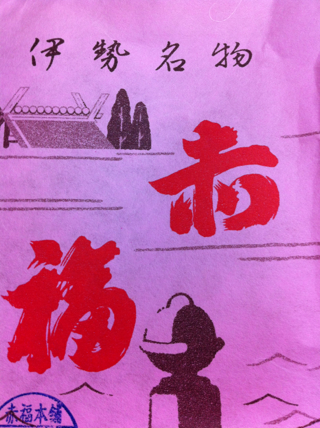 伊勢名物
赤
福
赤福本舗